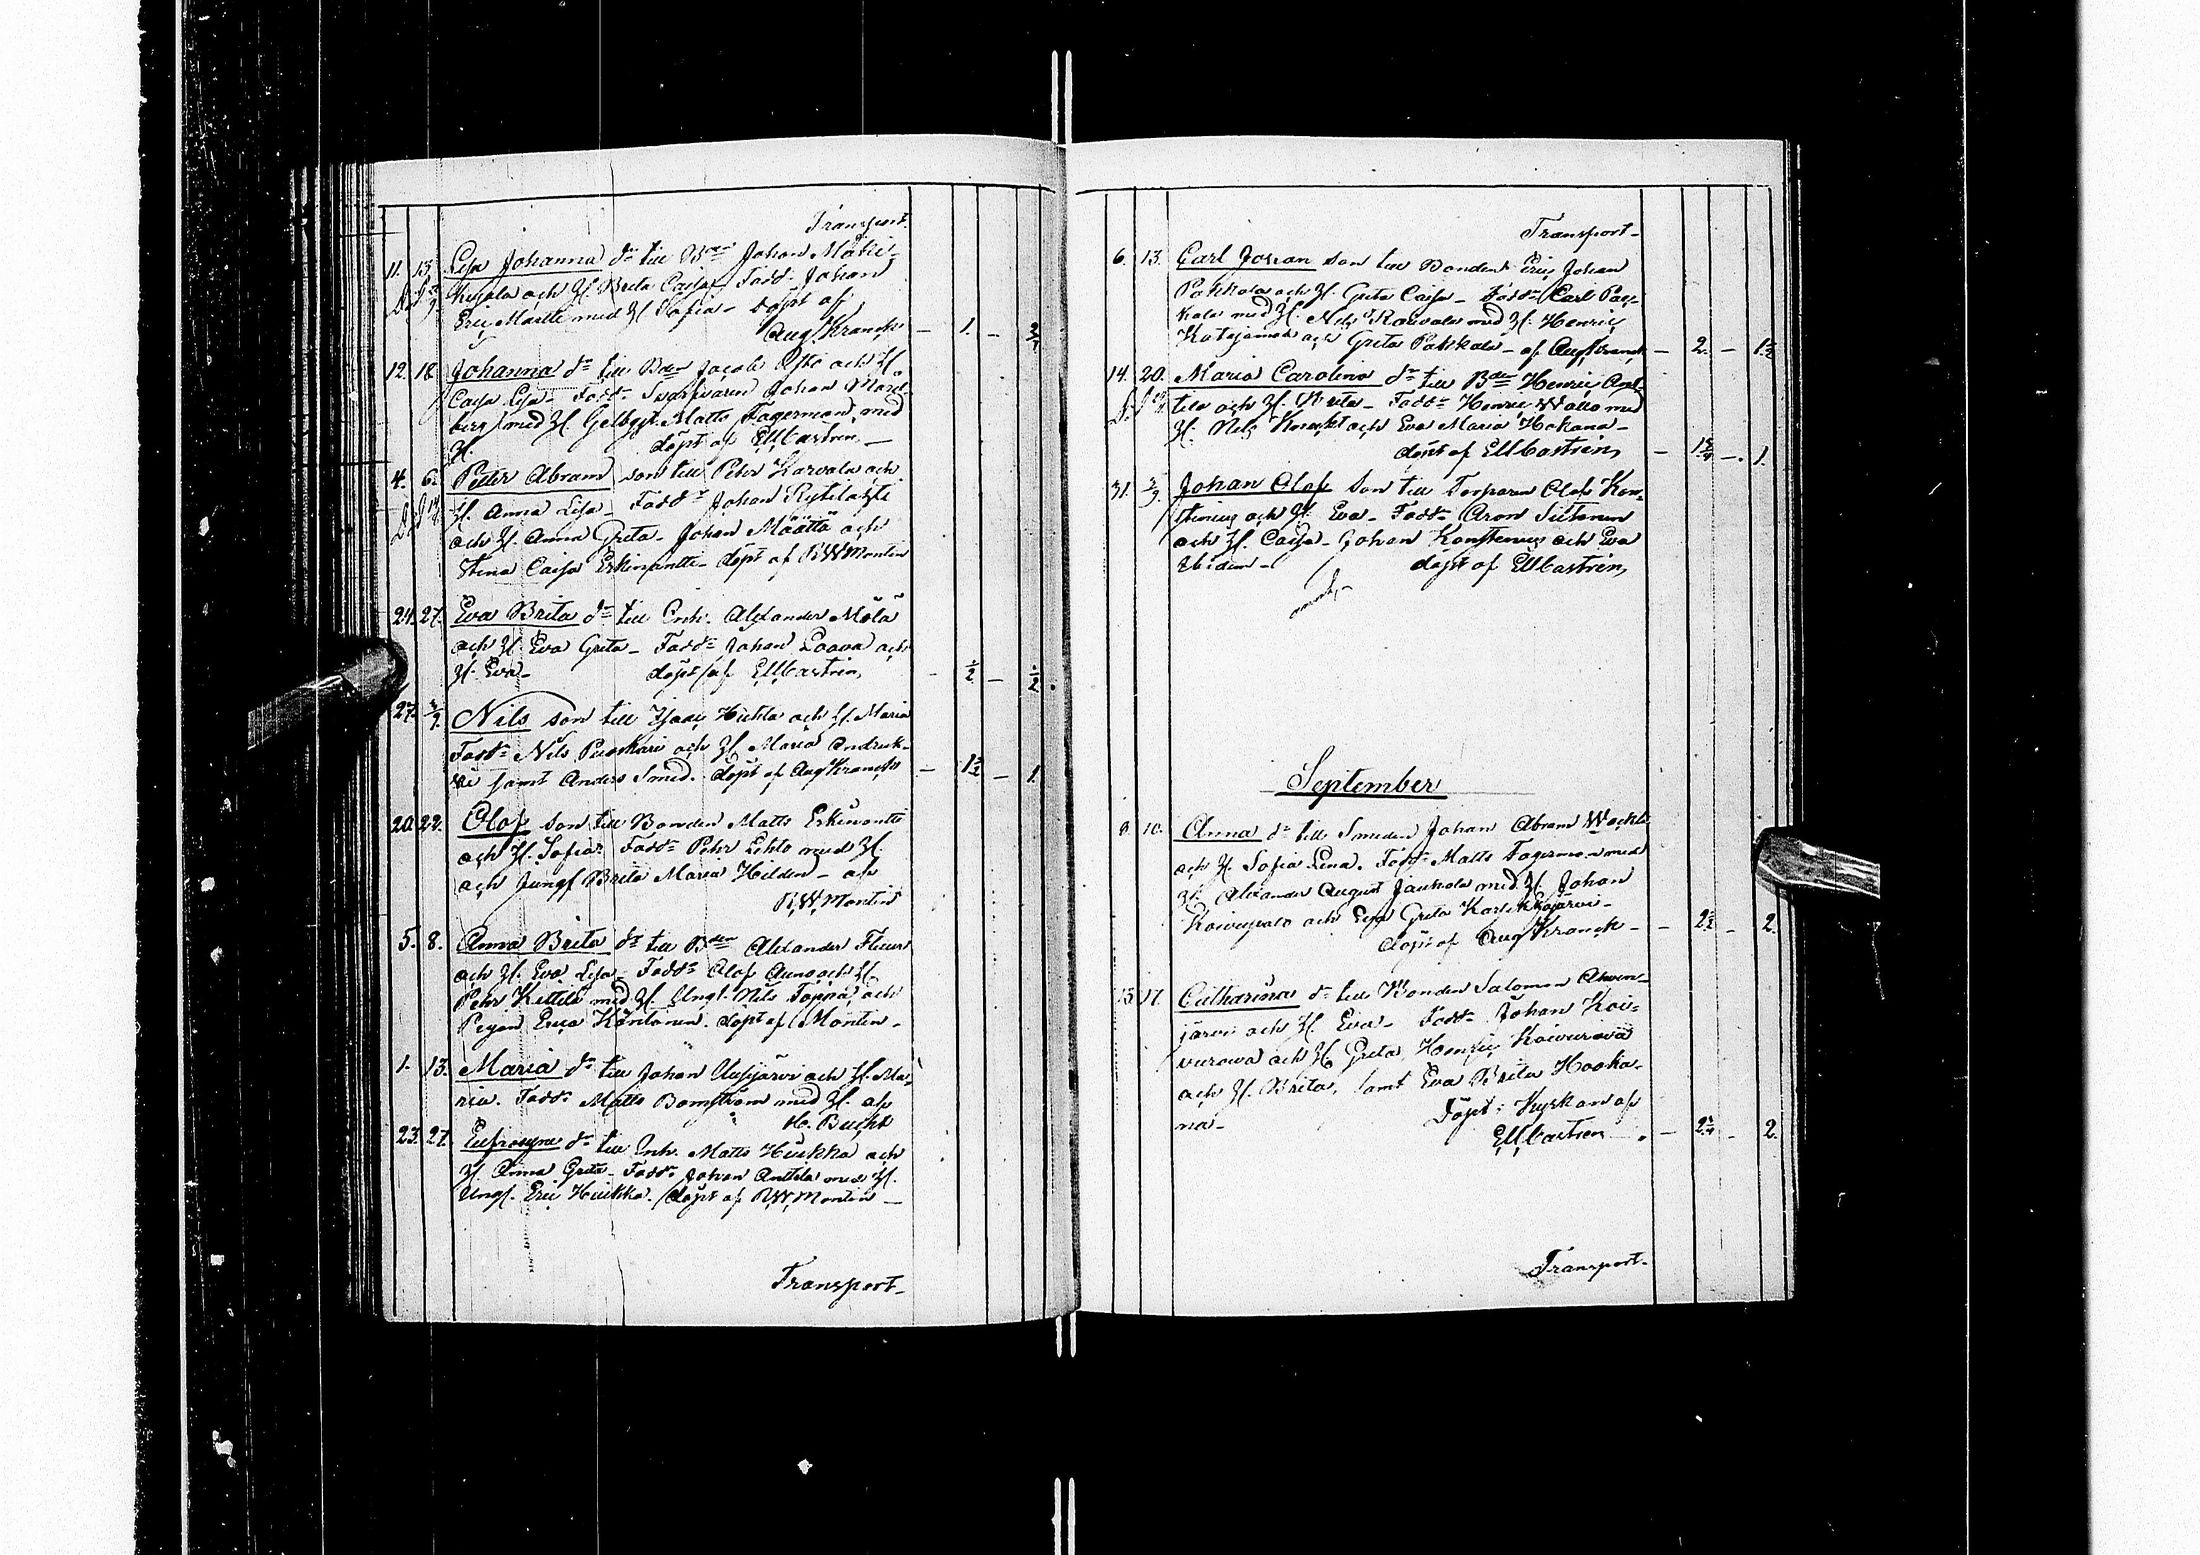 Transport.
11. 13. Lisa Johanna dr till Bden Johan Mäki-
kujala och H. Brita Caisa. Fadd: Johan
Eric Martti med H Sofia - döpt af
Aug Kranck - 1. -
12. 18. Johanna dr till Bden Jacob och H.
Caisa Lisa - Fadd: Johan
berg med H. Matts Fagerman med
H. döpt af EMCastrén -
4. 6. Petter Abram son till Pehr Karvala och
H. Anna Lisa - Fadd: Johan Rytilahti
och H. Anna Greta - Johan Määttä och
Stina Caisa Erkinantti - döpt af RWMontin
24. 27. Eva Brita dr till Enh. Alexander Mölä
och H. Eva Greta - Fadd: Johan Laava och
H. Eva - döpt af EMCastrén - 1/2 - 1/2.
27. Nils son till Isaac Hietala och H. Maria
Fadd: Nils Puoskari och H Maria
samt Anders Smed. döpt af Aug Kranck - 1 1/2 - 1.
20. 22. Olof son till Bonden Matts Erkinantti
och H. Sofia. Fadd: Pehr Lehto med H.
och Jungf Brita Maria Hilden - af
RWMontin
5. 8. Anna Brita dr till Bden Alexander
och H. Eva Lisa - Fadd: Olof Auno och H.
Pehr Kittilä med H. Ungl. Nils och
Pigan Erica Kantonen. döpt af Montin -
1. 13. Maria dr till Johan Auxjärvi och H. Ma-
ria. Fadd: Matts Bomström med H. af
H. Bucht
23. 27. Eufrosyne dr till Enh. Matts Hiukka och
H Anna Greta - Fadd: Johan Anttila med H.
Ungl. Eric Hiukka. döpt af RWMontin -
Transport -
Transport -
6. 13. Carl Johan son till Bonden Eric Johan
Pakkala och H. Greta Caisa - Fadd: Carl Pak-
kala med H. Nils Rauvala med H. Henric
Katajamaa och Greta Pakkala - af Aug Kranck - 2. - 1 1/2
14. 20. Maria Carolina dr till Bden Henric Ant-
tila och H. Brita - Fadd: Henric med
H. Nils och Eva Maria Hokana -
döpt af EMCastrén - 1.
31. Johan Olof son till Torparen Olof Kon-
stenius och H. Eva - Fadd: Aron Siitonen
och H. Caisa - Johan Konstenius och Eva
döpt af EMCastrén,
September
10. Anna dr till Smeden Johan Abram
och H. Sofia Lena. Fadd: Matts Fagerman med
H. Alexander August Jankala med H. Johan
och Greta
döpt af Aug Kranck - 2.
15. 17. Catharina dr till Bonden Salomon Ahven-
järvi och H. Eva - Fadd: Johan Koi-
vurova och H. Greta, Henric Koivurova
och H. Brita, samt Eva Brita Hooka-
na - Döpt i Kyrkan af
EMCastrén - 2.
Transport -